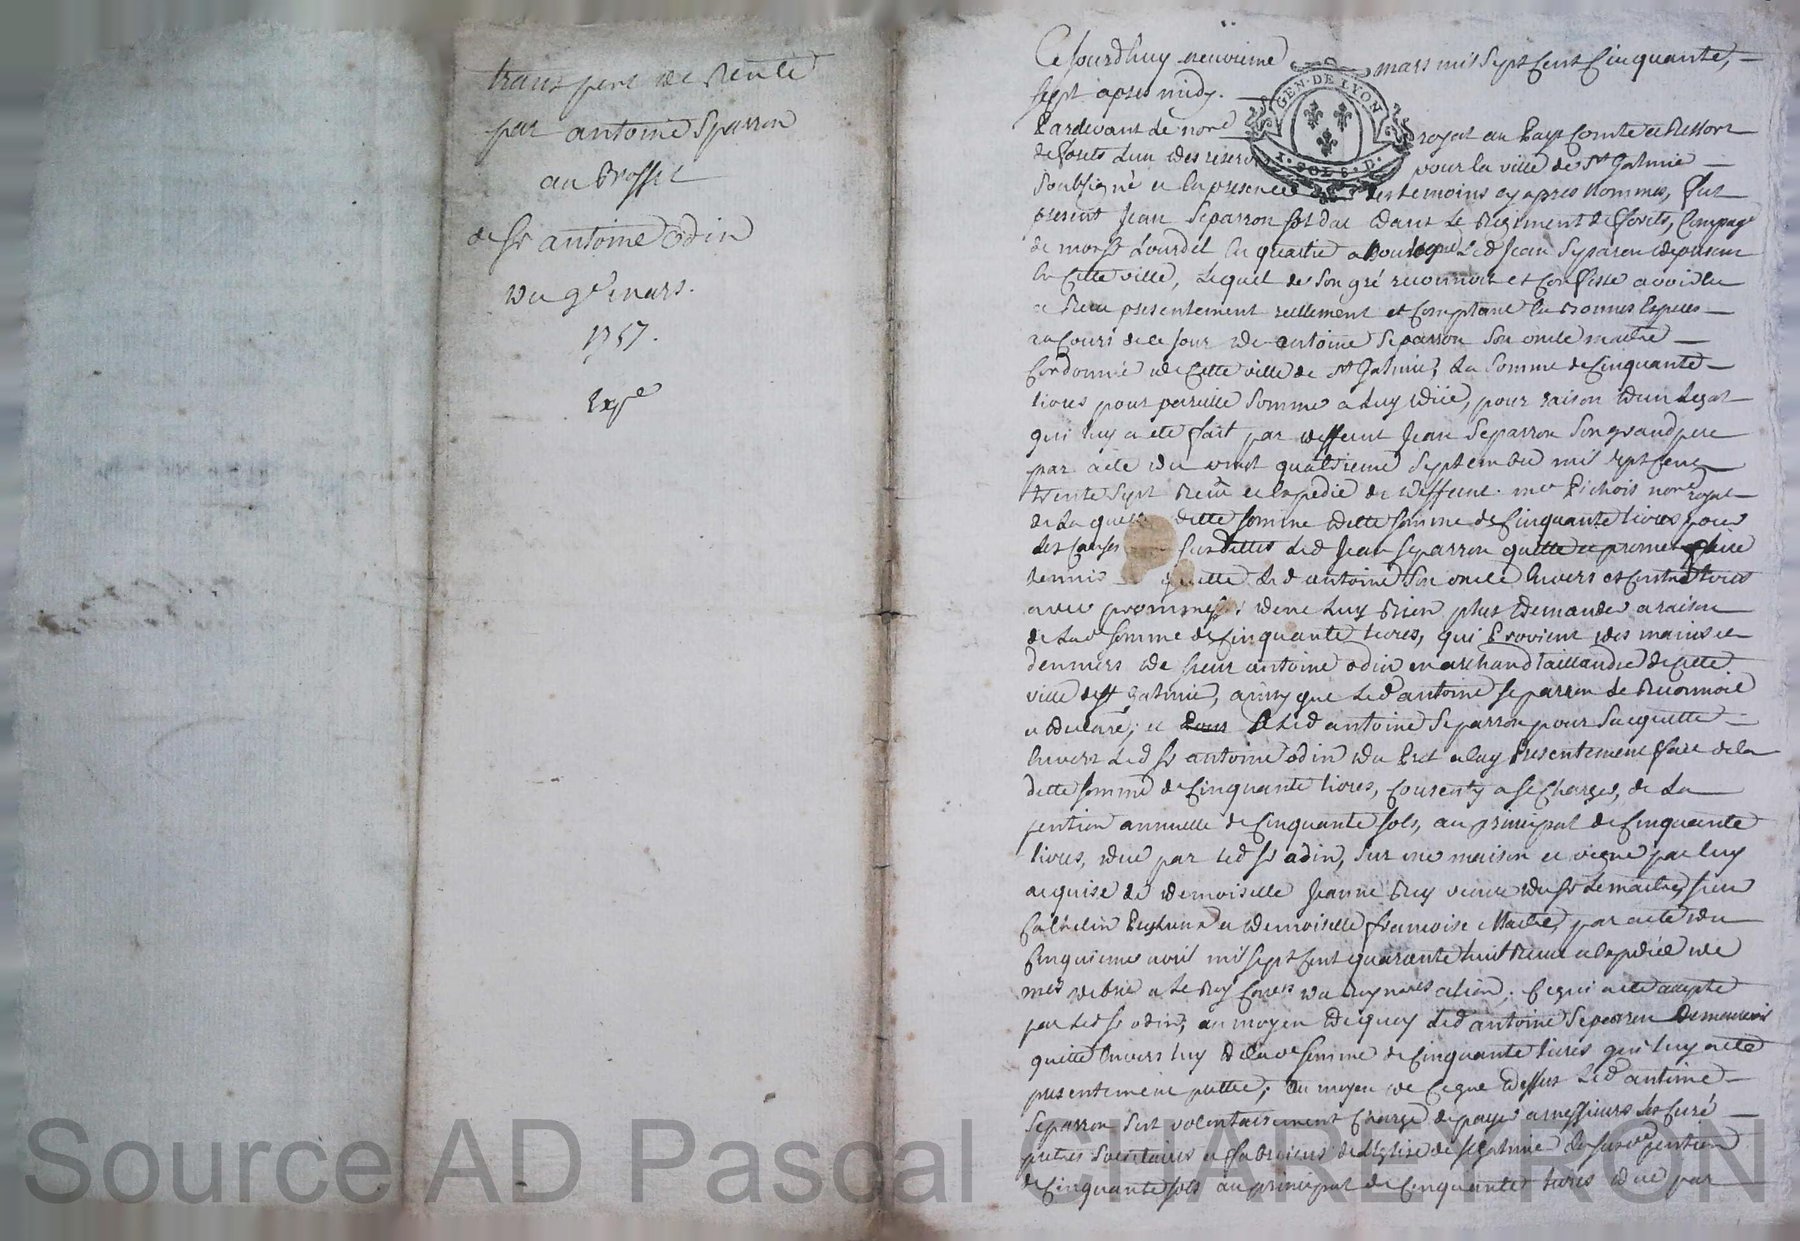 transport de Rente
par antoine Sparron
au Proffit
de Sr antoine Odin
du 9e mars.
1757.
Expe
Ce jourd'huy neuvieme mars mil sept Cent Cinquante,
sept apres midy.
GEN. DE LYON
1. SOL 6. D.
Pardevant le nore royal au Pays Comte et Ressort
de forets l'un des reser pour la ville de St Galmie
soubsigné et En presence des temoins cy apres Nommes, fut
present Jean Separron soldat dans Le Regiment de forets, Compage
de monsr Lourdel En quartie a Led Jean Sparron
En Cette ville, Lequel de Son gré reconnoit et Confesse avoir Eu
et Receu presentement reellement et Comptant En Bonnes Especes
au Cours de ce Jour de antoine Separron Son oncle maitre
Cordonnié de Cette ville de St Galmie, La Somme de Cinquante
livres pour pareille Somme a Luy düe, pour raison d'un Legat
qui luy a eté fait par deffunt Jean Separron Son grand pere
par acte du vingt quatrieme Septembre mil sept Cent
trente Sept Receu et Expedié de deffunt me Pichois nore royal
de La quelle dette somme dette somme de Cinquante livres pour
les Causes susdittes Led Jean Separron quitte et promet faire
tennir quitte Led antoine Son oncle Envers et Contre tous
avec promesse de ne Luy Rien plus Demander a raison
de Lade somme de Cinquante livres, qui Provient des mains et
denniers de sieur antoine odin marchand taillandié de Cette
ville de St Galmie, ainsy que Led antoine Separron Le Reconnoit
et declare; et Led antoine Separron pour S'acquitte
Envers Led Sr antoine odin du Pret a luy Presentement fait de la
dette somme de Cinquante livres, Consenty a se Charger, de La
pention annuelle de Cinquante sols, au principal de Cinquante
livres, due par Led Sr odin, sur une maison et vigne par luy
acquise de demoiselle Jeanne Rey veuve du Sr Lemaitre, sieur
et demoiselle francoise Maitre, par acte du
Cinquieme avril mil sept Cent quarante huit Receu et Expedié de
Ce qui a eté accepté
par Led Sr odin, au moyen De quoy Led antoine Separron Demeurera
quitte Envers luy De Lade somme de Cinquante livres qui luy a eté
presentement prettée; Au moyen de Ce que Dessus Led antoine
Separron S'est volontairement Chargé de payer a messieurs Les Curé
pretres Societaires et fabriciens de L'Eglise de St Galmie La susde pention
de Cinquante sols au principal de Cinquante livres due par
Source AD Pascal CHAREYRON